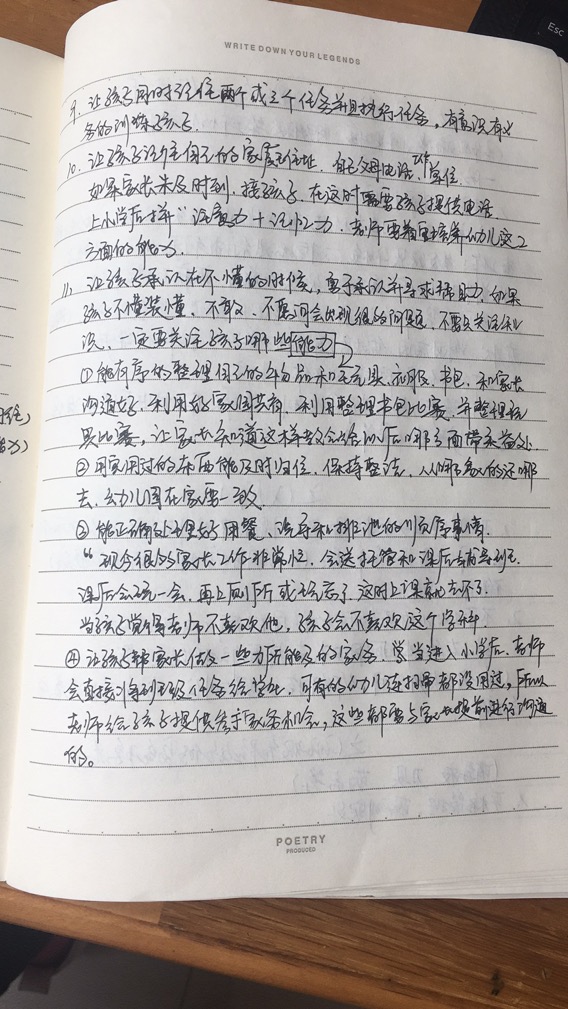 Esc
WRITE DOWN YOUR LEGENDS
9. 让孩子同时记住两个或三个任务并且执行任务,有意识有义
务的训练孩子.
10. 让孩子记住自己的家庭住址,和父母电话,工作单位.
如果家长未及时到,接孩子,在这时需要孩子提供电话
上小学后一样"注意力+记忆力.老师要着重培养幼儿这2
方面的能力.
11. 让孩子承认在不懂的时候,勇于承认并寻求帮助,如果
孩子不懂装懂、不敢、不愿问会出现很多的问题,不要只关注知
识、一定要关注孩子哪些能力
①能有序的整理自己的物品和玩具、衣服、书包、和家长
沟通好,利用好家园共育,利用整理书包比赛,并整理玩
具比赛,让家长知道这样做会给以后哪方面带来益处.
②用完用过的东西能及时归位,保持整洁,从哪拿的还哪
去,幼儿园在家要一致.
③能正确处理好用餐、洗手和排泄的顺序事情.
"现今很多家长工作非常忙,会送托管和课后辅导班
课后会玩一会,再上厕所或玩忘了,这时上课就去不了.
当孩子觉得老师不喜欢他,孩子会不喜欢这个学科.
④让孩子帮家长做一些力所能及的家务,当进入小学后,老师
会直接分享到班级任务给学生,可有的幼儿连扫帚都没用过,所以
老师给孩子提供参于家务机会,这些都要与家长提前进行沟通
的。
POETRY
PRODUCED